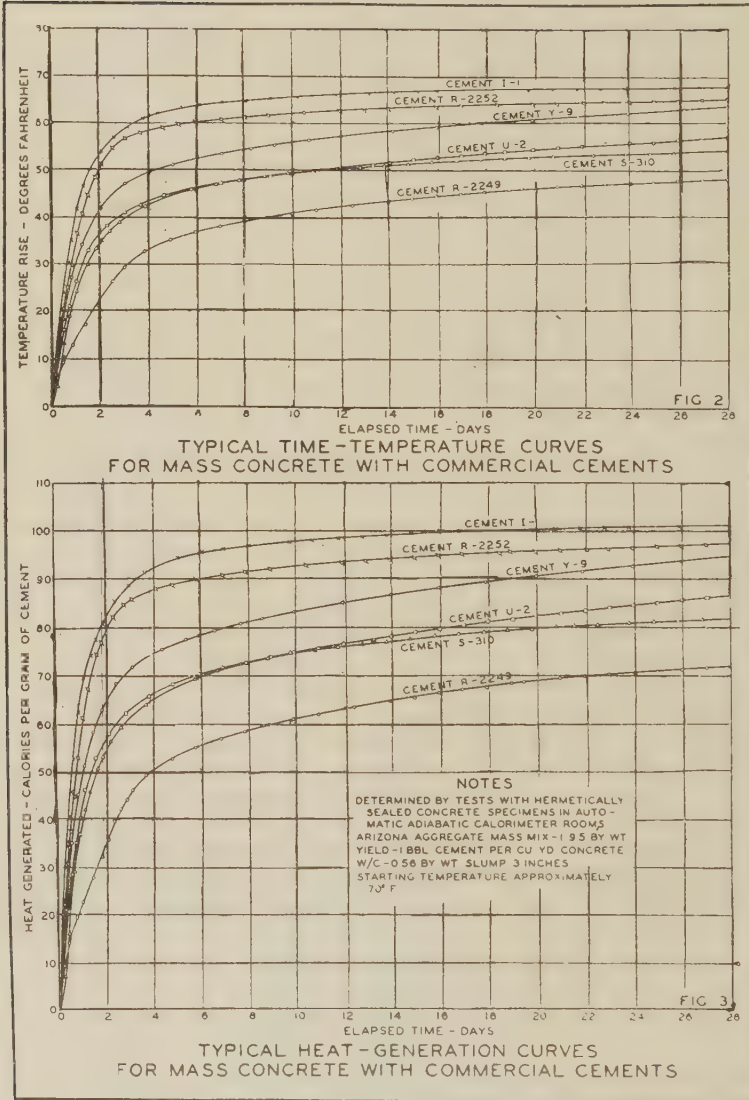 90
80
70
60
50
40
30
20
10
0
TEMPERATURE RISE - DEGREES FAHRENHEIT
CEMENT I-1
CEMENT R-2252
CEMENT Y-9
CEMENT U-2
CEMENT S-310
CEMENT R-2249
FIG 2
0 2 4 6 8 10 12 14 16 18 20 22 24 26 28
ELAPSED TIME - DAYS
TYPICAL TIME-TEMPERATURE CURVES
FOR MASS CONCRETE WITH COMMERCIAL CEMENTS
110
100
90
80
70
60
50
40
30
20
10
0
HEAT GENERATED - CALORIES PER GRAM OF CEMENT
CEMENT I-
CEMENT R-2252
CEMENT Y-9
CEMENT U-2
CEMENT S-310
CEMENT R-2249
NOTES
DETERMINED BY TESTS WITH HERMETICALLY
SEALED CONCRETE SPECIMENS IN AUTO-
MATIC ADIABATIC CALORIMETER ROOMS
ARIZONA AGGREGATE MASS MIX-1 9.5 BY WT
YIELD-1 BBL CEMENT PER CU YD CONCRETE
W/C-0.56 BY WT SLUMP 3 INCHES
STARTING TEMPERATURE APPROXIMATELY
70° F
FIG 3
0 2 4 6 8 10 12 14 16 18 20 22 24 26 28
ELAPSED TIME - DAYS
TYPICAL HEAT-GENERATION CURVES
FOR MASS CONCRETE WITH COMMERCIAL CEMENTS